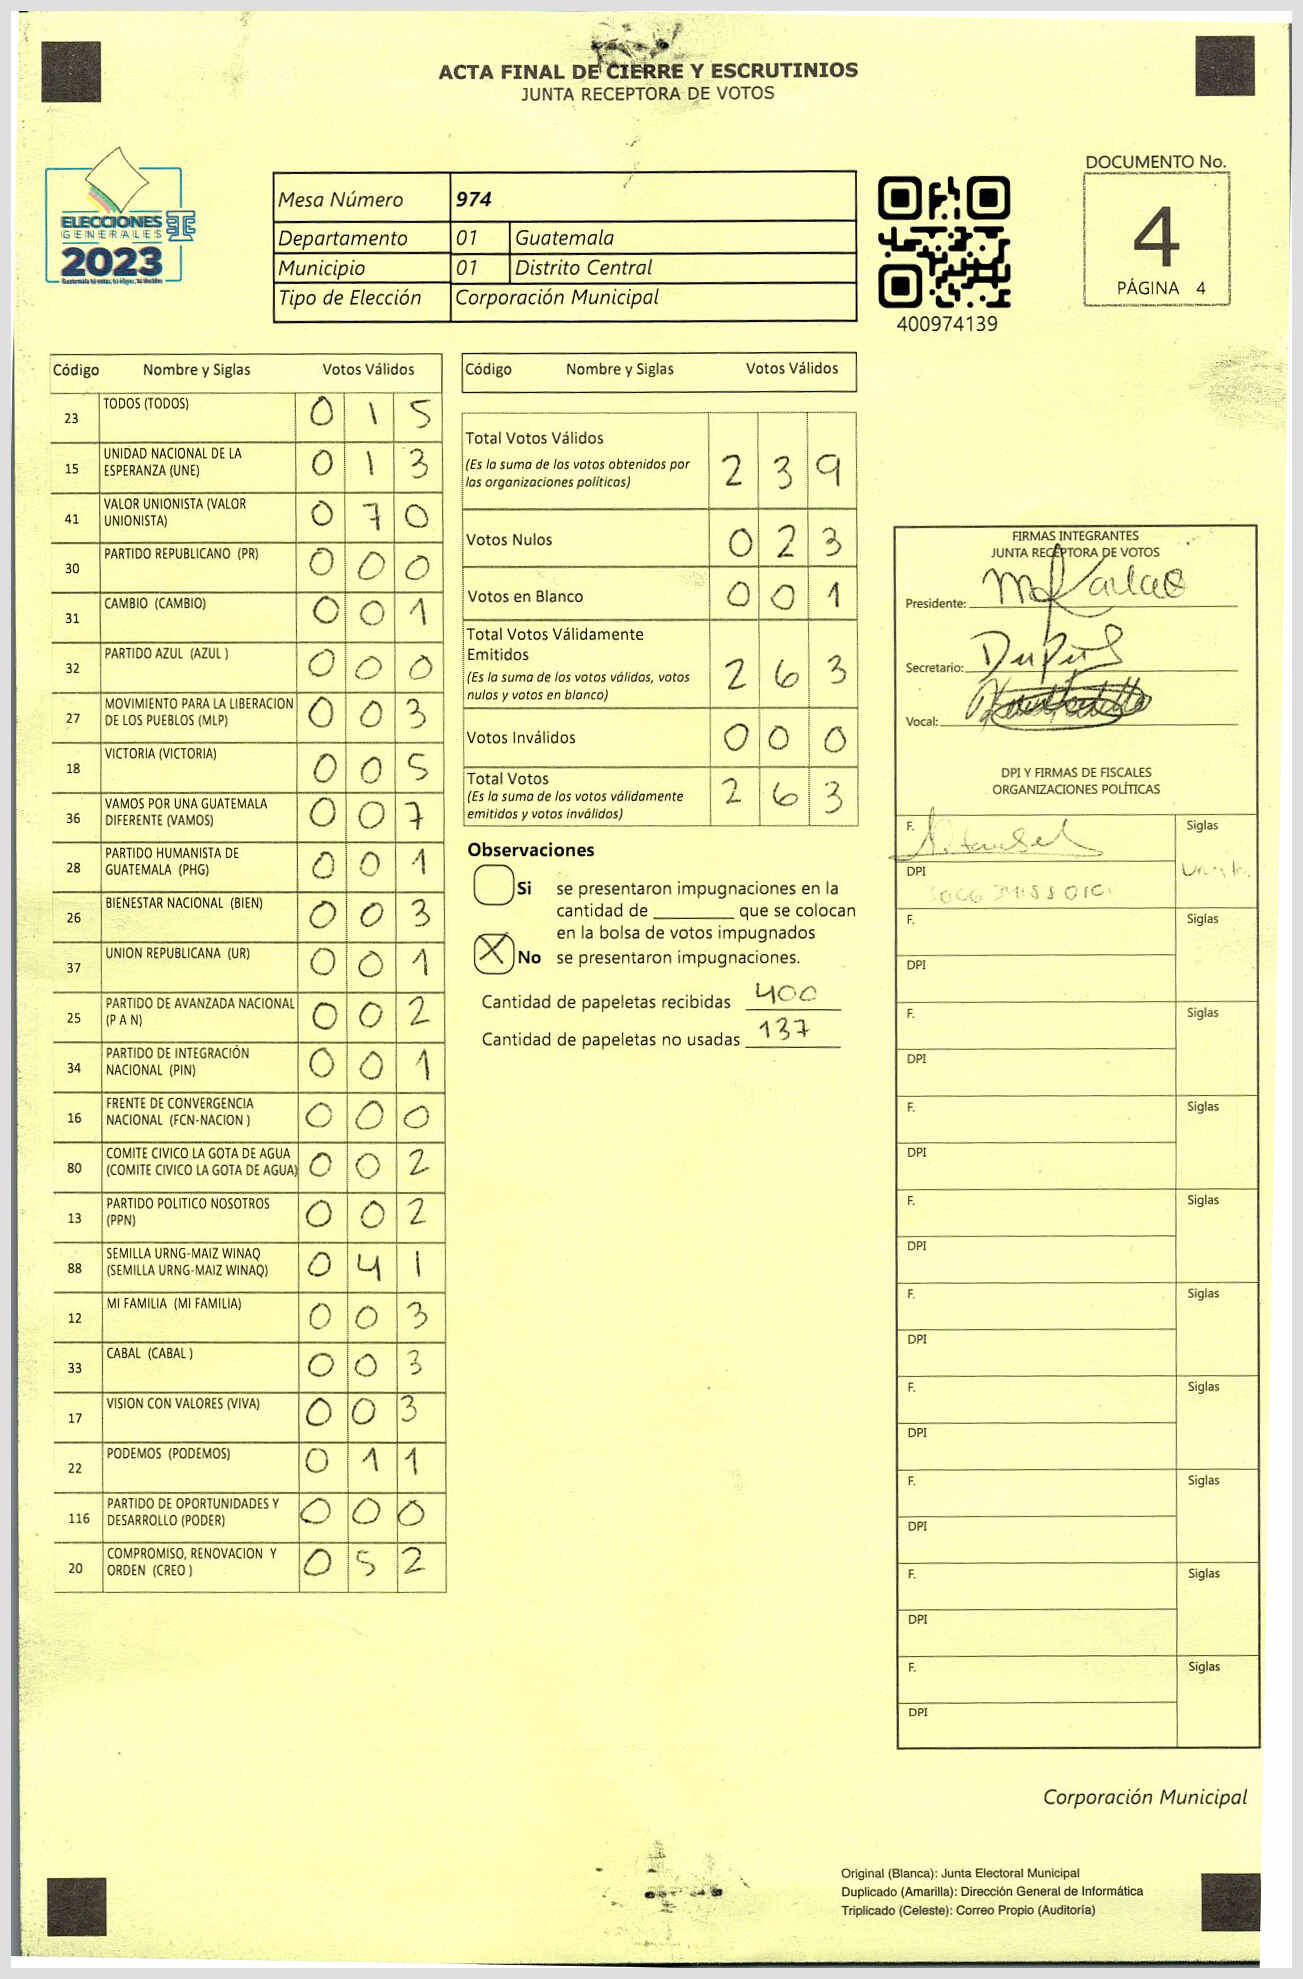 ACTA FINAL DE CIERRE Y ESCRUTINIOS
JUNTA RECEPTORA DE VOTOS
ELECCIONES
GENERALES
2023
Mesa Número 974
Departamento 01 Guatemala
Municipio 01 Distrito Central
Tipo de Elección Corporación Municipal
400974139
DOCUMENTO No.
4
PÁGINA 4
Código Nombre y Siglas Votos Válidos
23 TODOS (TODOS) 0 1 5
15 UNIDAD NACIONAL DE LA
ESPERANZA (UNE) 0 1 3
41 VALOR UNIONISTA (VALOR
UNIONISTA) 0 7 0
30 PARTIDO REPUBLICANO (PR) 0 0 0
31 CAMBIO (CAMBIO) 0 0 1
32 PARTIDO AZUL (AZUL ) 0 0 0
27 MOVIMIENTO PARA LA LIBERACION
DE LOS PUEBLOS (MLP) 0 0 3
18 VICTORIA (VICTORIA) 0 0 5
36 VAMOS POR UNA GUATEMALA
DIFERENTE (VAMOS) 0 0 7
28 PARTIDO HUMANISTA DE
GUATEMALA (PHG) 0 0 1
26 BIENESTAR NACIONAL (BIEN) 0 0 3
37 UNION REPUBLICANA (UR) 0 0 1
25 PARTIDO DE AVANZADA NACIONAL
(P A N) 0 0 2
34 PARTIDO DE INTEGRACIÓN
NACIONAL (PIN) 0 0 1
16 FRENTE DE CONVERGENCIA
NACIONAL (FCN-NACION ) 0 0 0
80 COMITE CIVICO LA GOTA DE AGUA
(COMITE CIVICO LA GOTA DE AGUA) 0 0 2
13 PARTIDO POLITICO NOSOTROS
(PPN) 0 0 2
88 SEMILLA URNG-MAIZ WINAQ
(SEMILLA URNG-MAIZ WINAQ) 0 4 1
12 MI FAMILIA (MI FAMILIA) 0 0 3
33 CABAL (CABAL ) 0 0 3
17 VISION CON VALORES (VIVA) 0 0 3
22 PODEMOS (PODEMOS) 0 1 1
116 PARTIDO DE OPORTUNIDADES Y
DESARROLLO (PODER) 0 0 0
20 COMPROMISO, RENOVACION Y
ORDEN (CREO ) 0 5 2
Código Nombre y Siglas Votos Válidos
Total Votos Válidos
(Es la suma de los votos obtenidos por
las organizaciones políticas) 2 3 9
Votos Nulos 0 2 3
Votos en Blanco 0 0 1
Total Votos Válidamente
Emitidos
(Es la suma de los votos válidos, votos
nulos y votos en blanco) 2 6 3
Votos Inválidos 0 0 0
Total Votos
(Es la suma de los votos válidamente
emitidos y votos inválidos) 2 6 3
Observaciones
Si se presentaron impugnaciones en la
cantidad de ________ que se colocan
en la bolsa de votos impugnados
X No se presentaron impugnaciones.
Cantidad de papeletas recibidas 400
Cantidad de papeletas no usadas 137
FIRMAS INTEGRANTES
JUNTA RECEPTORA DE VOTOS
Presidente:
Secretario:
Vocal:
DPI Y FIRMAS DE FISCALES
ORGANIZACIONES POLÍTICAS
F. Siglas
DPI
F. Siglas
DPI
F. Siglas
DPI
F. Siglas
DPI
F. Siglas
DPI
F. Siglas
DPI
F. Siglas
DPI
F. Siglas
DPI
F. Siglas
DPI
F. Siglas
DPI
Corporación Municipal
Original (Blanca): Junta Electoral Municipal
Duplicado (Amarilla): Dirección General de Informática
Triplicado (Celeste): Correo Propio (Auditoría)